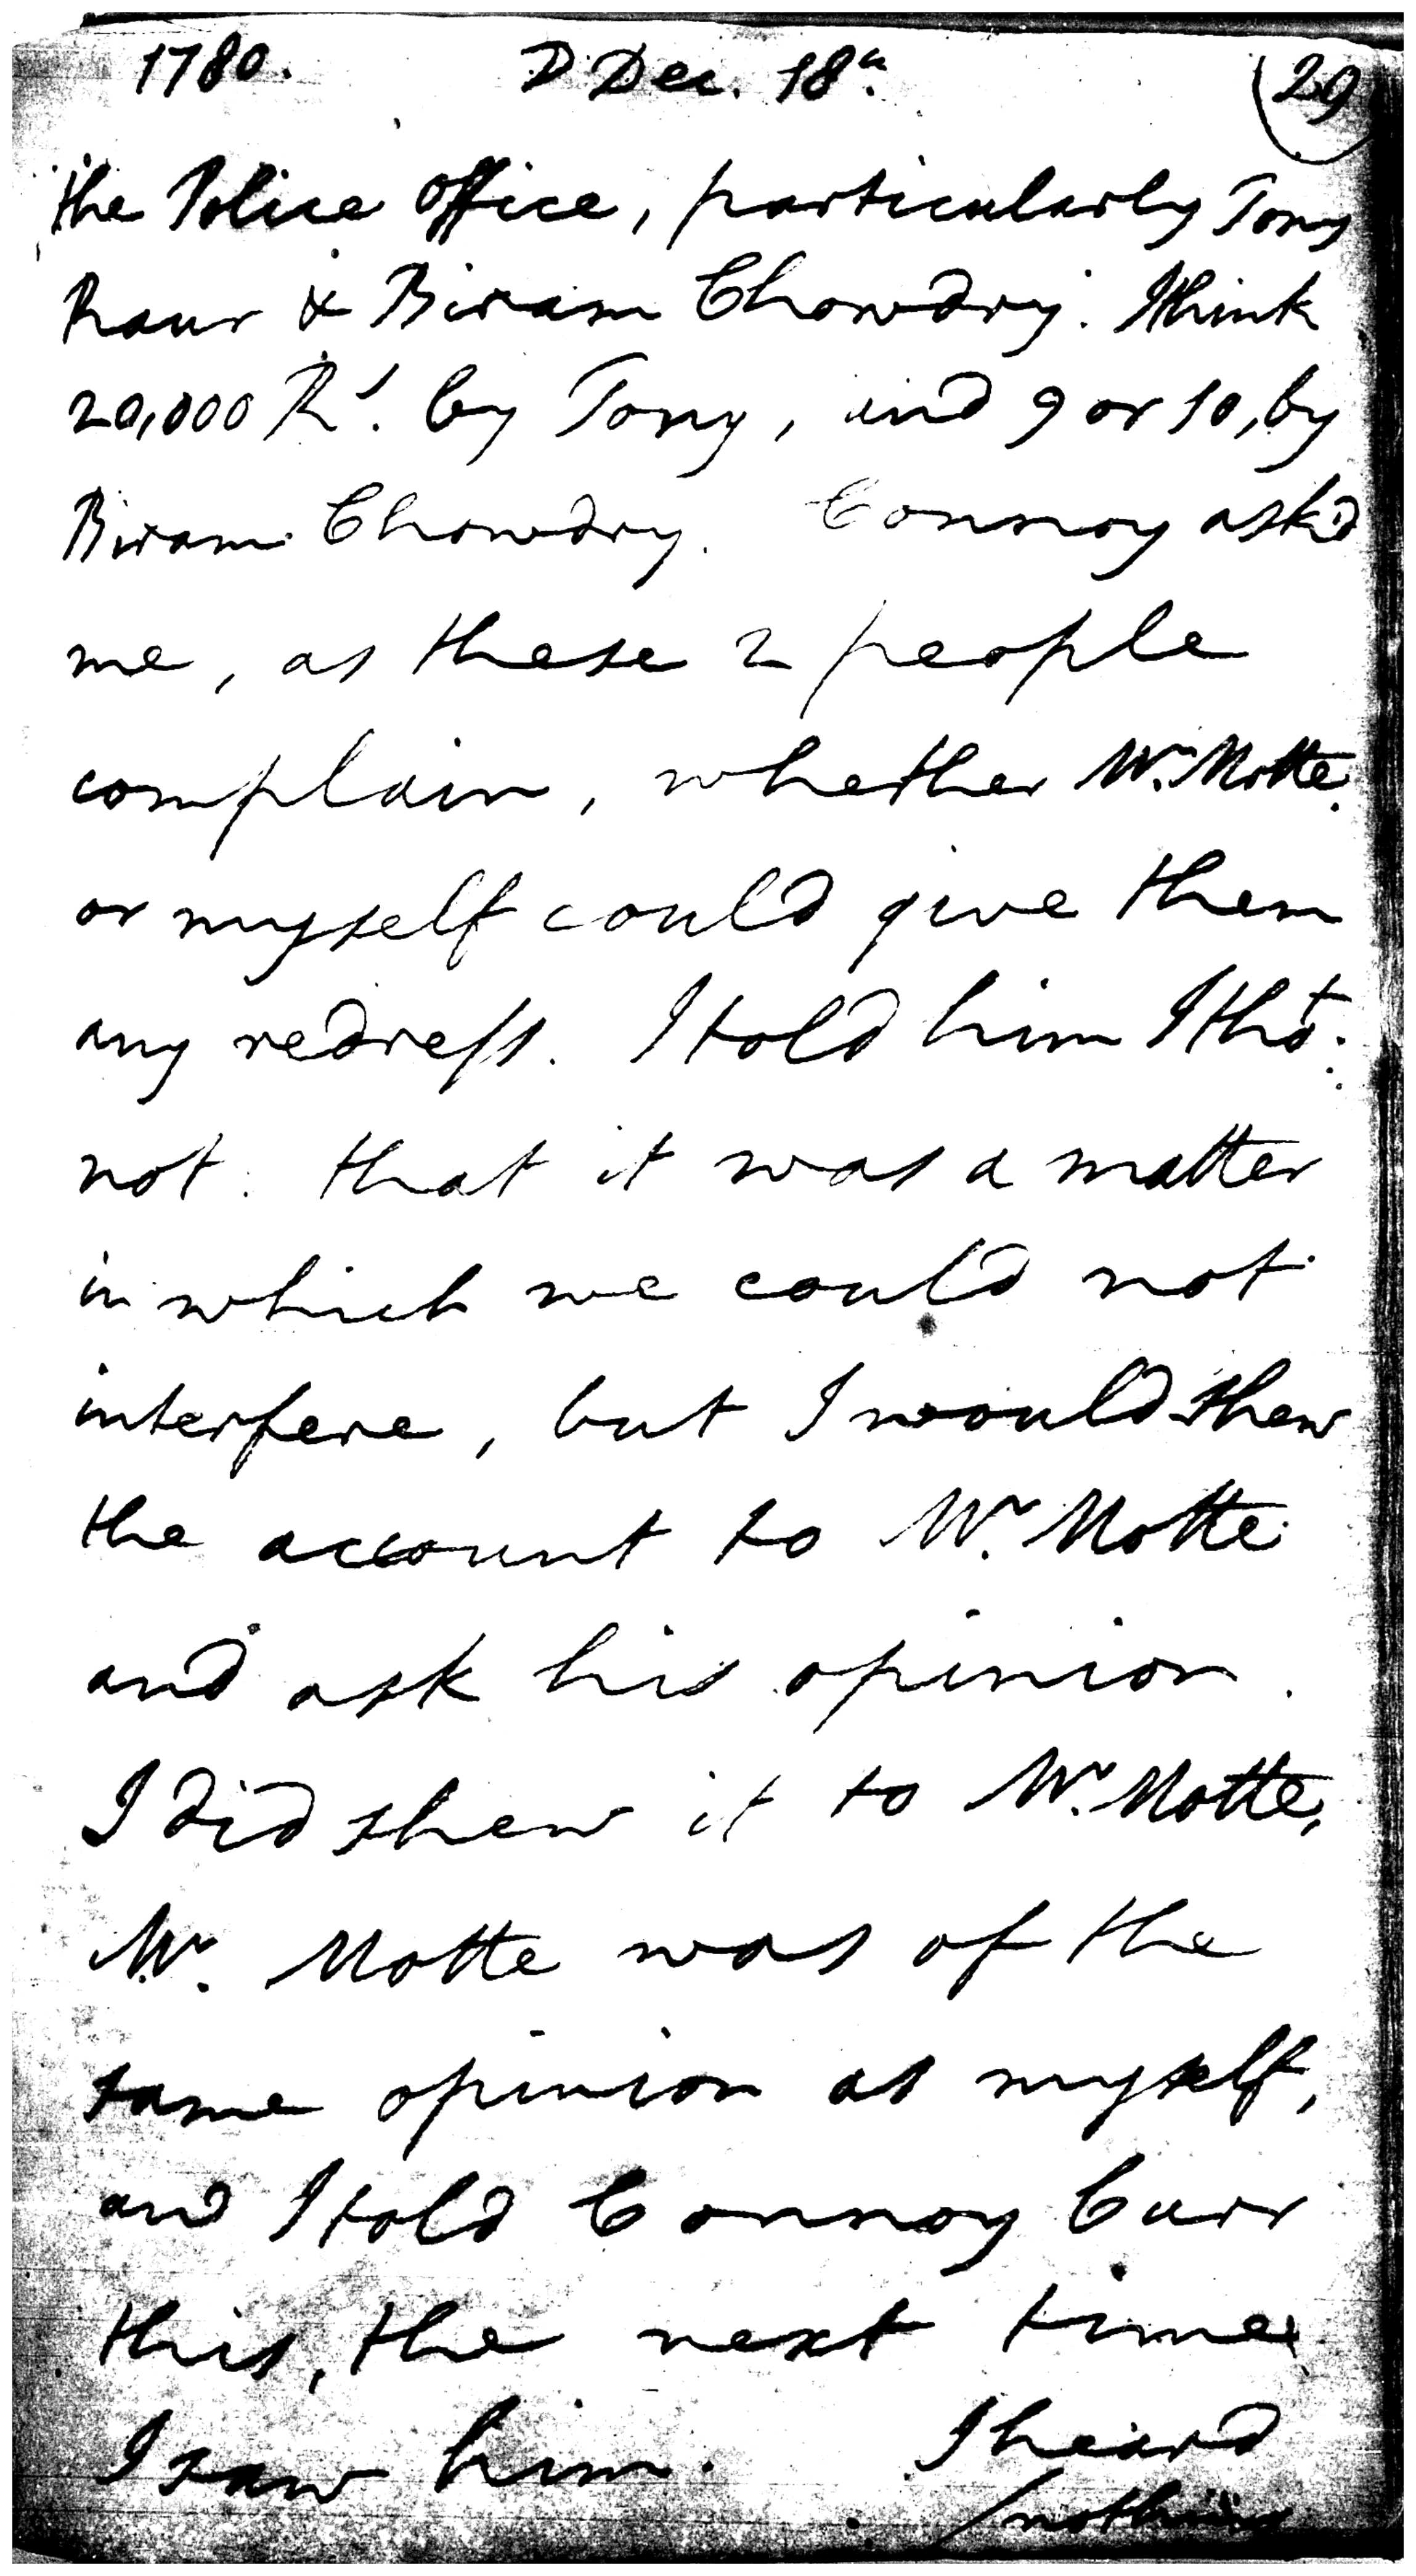 1780. D Dec. 18th. (29
the Police office, particularly Tony
Raur & Biram Chowdry. I think
20,000 Rs. by Tony, and 9 or 10, by
Biram Chowdry. Connoy ask'd
me, as these 2 people
complain, whether Mr. Motte
or myself could give them
any redress. I told him I thot.
not. that it was a matter
in which we could not
interfere, but I would shew
the account to Mr. Motte
and ask his opinion.
I did shew it to Mr. Motte,
Mr. Motte was of the
same opinion as myself,
and I told Connoy Curr
this, the next time
I saw him. I heard
/nothing